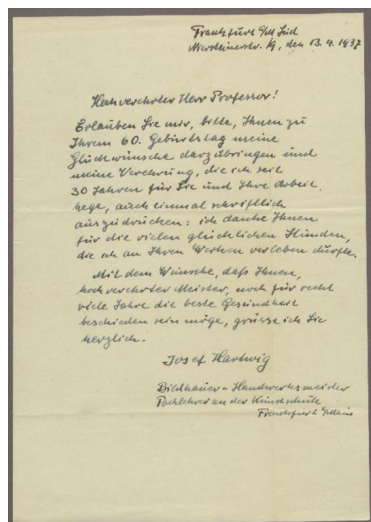 Frankfurt a/M Süd
Niersteinerstr. 19, den 13.4.1937
Hochverehrter Herr Professor!
Erlauben Sie mir, bitte, Ihnen zu
Ihrem 60. Geburtstag meine
Glückwünsche darzubringen und
meine Verehrung, die ich seit
30 Jahren für Sie und Ihre Arbeit
hege, auch einmal schriftlich
auszudrücken: ich danke Ihnen
für die vielen glücklichen Stunden,
die ich an Ihren Werken verleben durfte.
Mit dem Wunsche, daß Ihnen,
hochverehrter Meister, noch für recht
viele Jahre die beste Gesundheit
beschieden sein möge, grüsse ich Sie
herzlich.
Josef Hartwig
Bildhauer - Handwerksmeister
Fachlehrer an der Kunstschule
Frankfurt